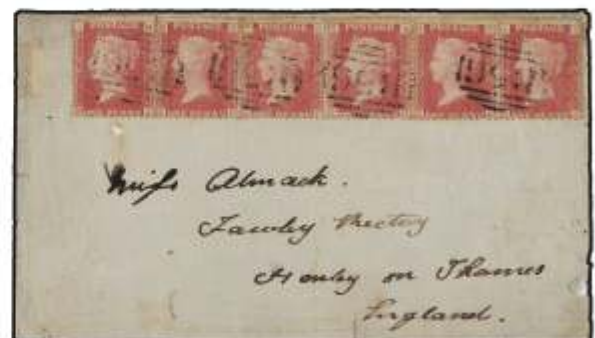 Miss Almack.
Fawley Rectory
Henley on Thames
England.